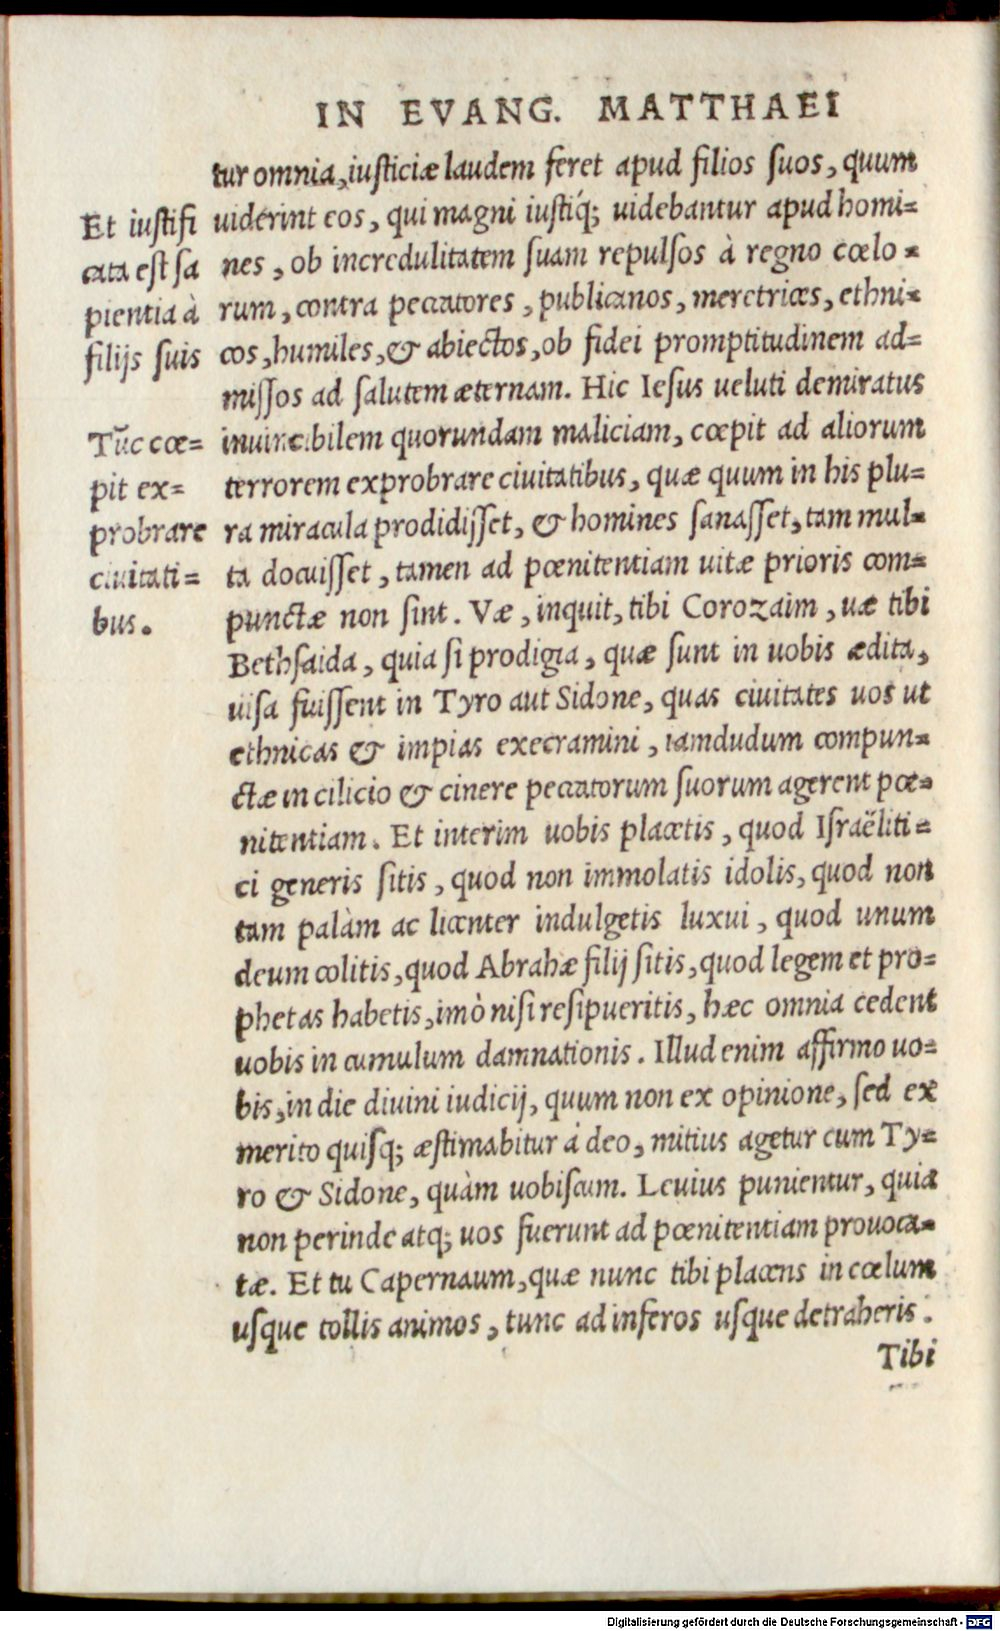 IN EVANG. MATTHAEI
tur omnia, iusticiæ laudem feret apud filios suos, quum
uiderint eos, qui magni iustíq; uidebantur apud homi=
nes, ob incredulitatem suam repulsos à regno cœlo=
rum, contra peccatores, publicanos, meretrices, ethni=
cos, humiles, & abiectos, ob fidei promptitudinem ad=
missos ad salutem æternam. Hic Iesus ueluti demiratus
inuincibilem quorundam maliciam, cœpit ad aliorum
terrorem exprobrare ciuitatibus, quæ quum in his plu=
ra miracula prodidisset, & homines sanasset, tam mul=
ta docuisset, tamen ad pœnitentiam uitæ prioris com=
punctæ non sint. Væ, inquit, tibi Corozaim, uæ tibi
Bethsaida, quia si prodigia, quæ sunt in uobis ædita,
uisa fuissent in Tyro aut Sidone, quas ciuitates uos ut
ethnicas & impias execramini, iamdudum compun=
ctæ in cilicio & cinere peccatorum suorum agerent pœ=
nitentiam. Et interim uobis placetis, quod Israëliti=
ci generis sitis, quod non immolatis idolis, quod non
tam palàm ac licenter indulgetis luxui, quod unum
deum colitis, quod Abrahæ filij sitis, quod legem et pro=
phetas habetis, imò nisi resipueritis, hæc omnia cedent
uobis in cumulum damnationis. Illud enim affirmo uo=
bis, in die diuini iudicij, quum non ex opinione, sed ex
merito quisq; æstimabitur à deo, mitius agetur cum Ty=
ro & Sidone, quàm uobiscum. Leuius punientur, quia
non perinde atq; uos fuerunt ad pœnitentiam prouoca=
tæ. Et tu Capernaum, quæ nunc tibi placens in cœlum
usque tollis animos, tunc ad inferos usque detraheris.
Tibi
Et iustifi
cata est sa
pientia à
filijs suis
Tũc cœ=
pit ex=
probrare
ciuitati=
bus.
Digitalisierung gefördert durch die Deutsche Forschungsgemeinschaft - DFG